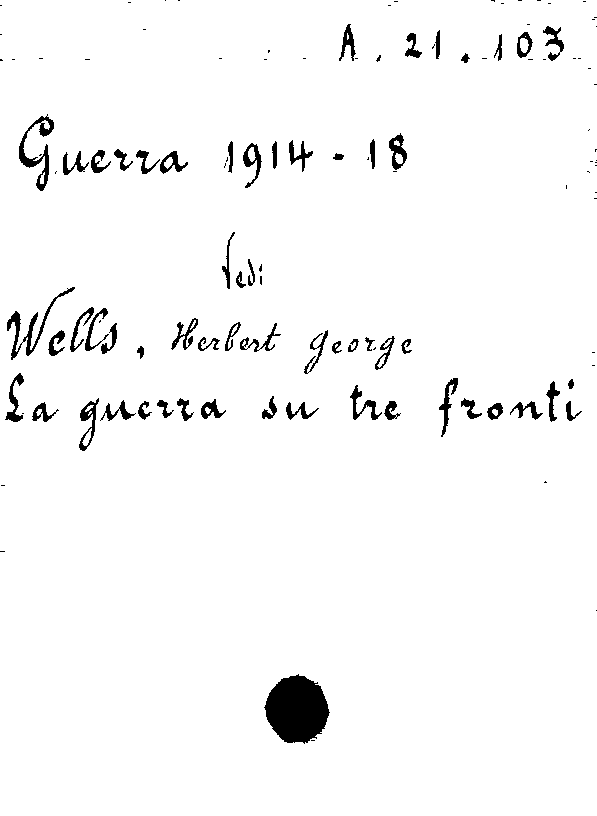 A. 21. 103
Guerra 1914-18
Vedi
Wells, Herbert George
La guerra su tre fronti